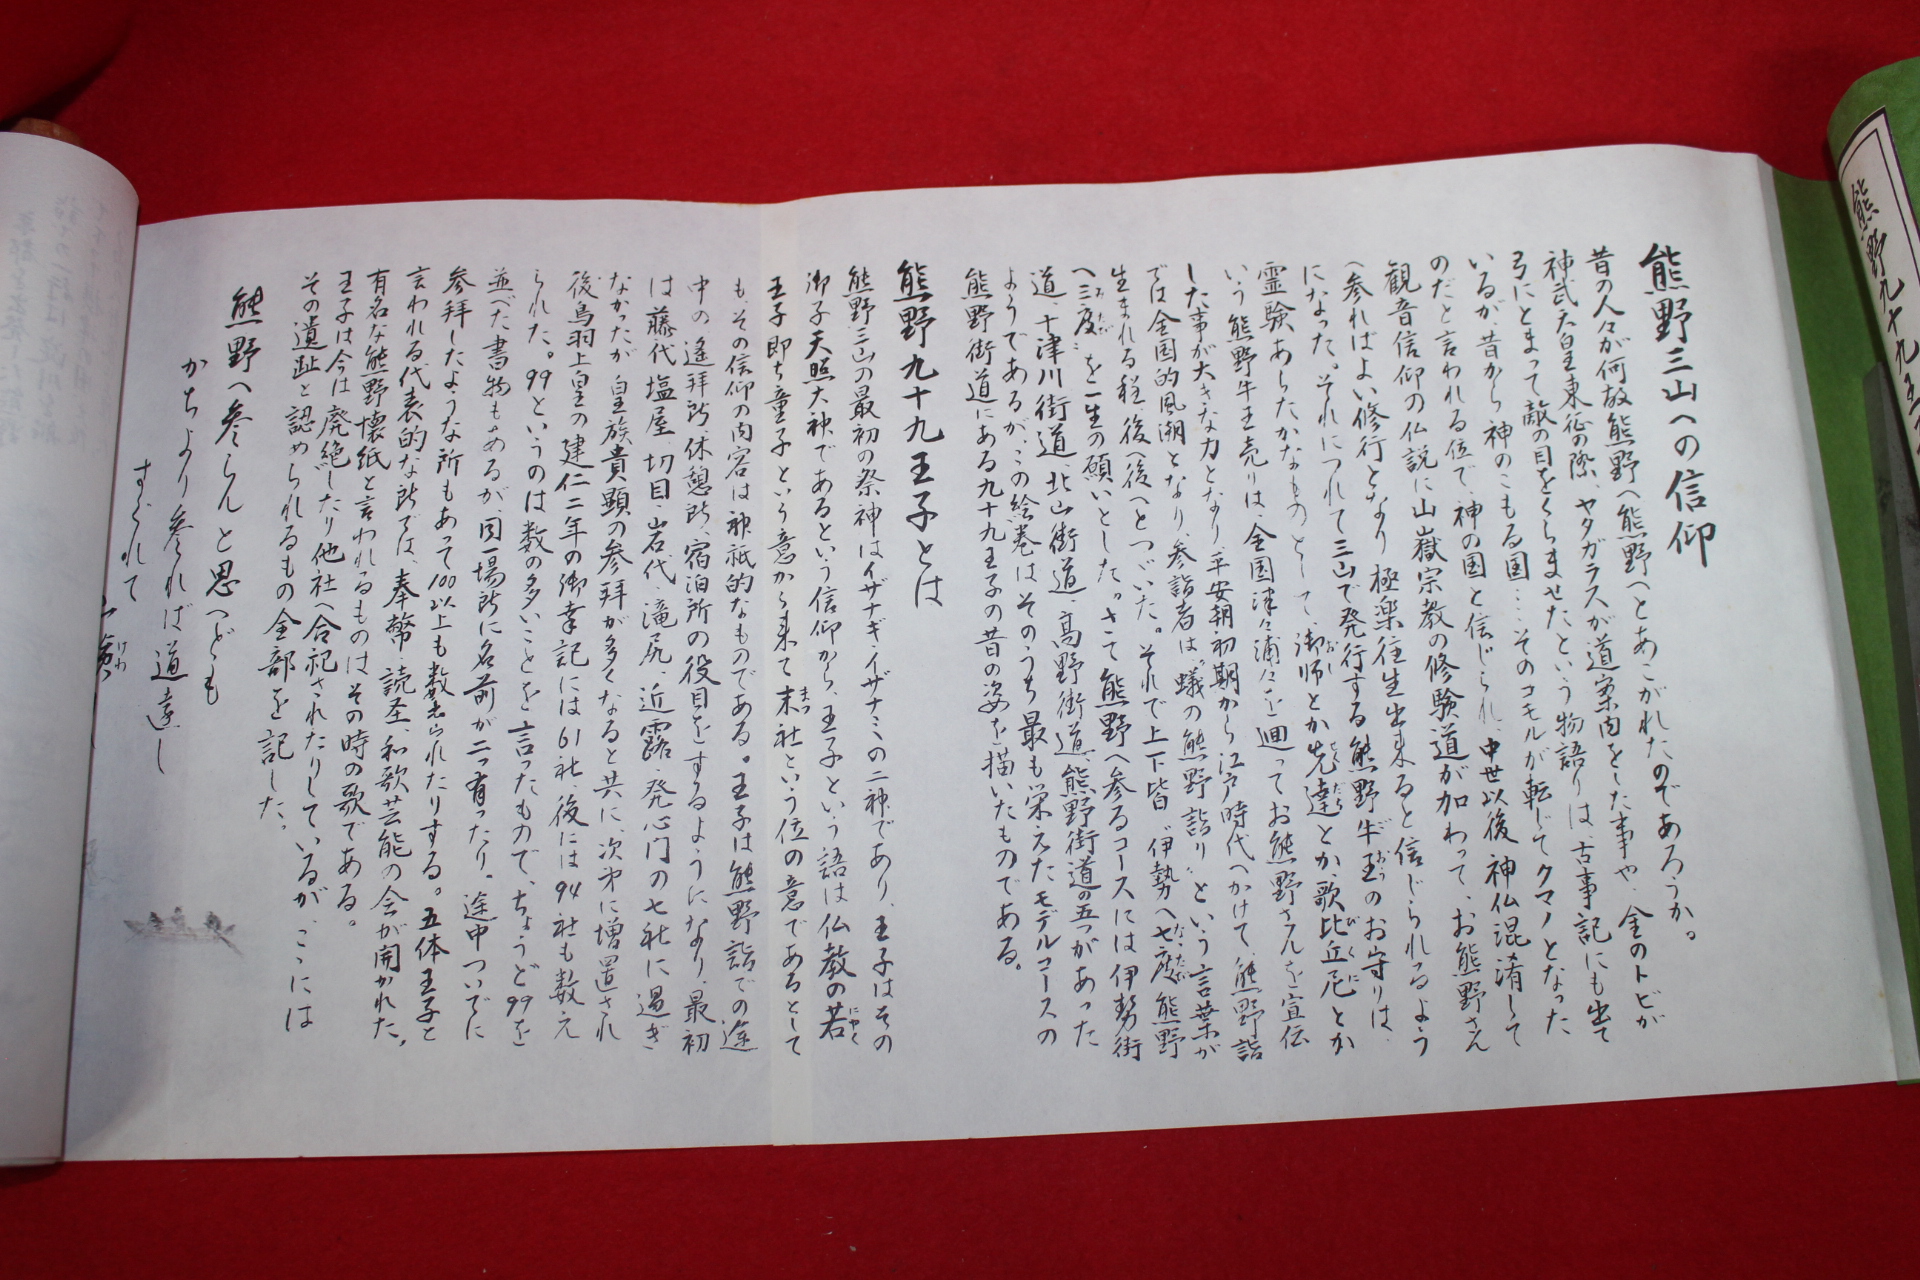 熊野九十九王
熊野三山への信仰
昔の人々が何故熊野へ熊野へとあこがれたのであろうか。
神武天皇東征の際、ヤタガラスが道案内をした事や、金のトビが
弓にとまって敵の目をくらませたという物語りは、古事記にも出て
いるが、昔から神のこもる国…そのコモルが転じてクマノとなった
のだと言われる位で、神の国と信じられ、中世以後神仏混淆して
観音信仰の仏説に山嶽宗教の修験道が加わって、お熊野さん
へ参ればよい修行となり極楽往生出来ると信じられるよう
になった。それにつれて三山で発行する熊野牛王のお守りは、
霊験あらたかなものとして、御師とか先達とか、歌比丘尼とか
いう熊野牛王売りは、全国津々浦々を廻ってお熊野さんを宣伝
した事が大きな力となり平安朝初期から江戸時代へかけて、熊野詣
では全国的風潮となり、参詣者は〝蟻の熊野詣り〟という言葉が
生まれる程、後へ後へとつゞいた。それで上下皆〝伊勢へ七度熊野
へ三度〟を一生の願いとした。さて熊野へ参るコースには伊勢街
道、十津川街道、北山街道、高野街道、熊野街道の五つがあった
ようであるが、この絵巻はそのうち最も栄えたモデルコースの
熊野街道にある九十九王子の昔の姿を描いたものである。
熊野九十九王子とは
熊野三山の最初の祭神はイザナギ・イザナミの二神であり、王子はその
御子天照大神であるという信仰から、王子という語は仏教の若
王子即ち童子という意から来て末社という位の意であるとして
も、その信仰の内容は神祇的なものである。王子は熊野詣での途
中の遙拝所、休憩所、宿泊所の役目をするようになり、最初
は藤代、塩屋、切目、岩代、滝尻、近露、発心門の七社に過ぎ
なかったが、皇族貴顕の参拝が多くなると共に、次次に増置され
後鳥羽上皇の建仁二年の御幸記には61社、後には94社も数え
られた。99というのは数の多いことを言ったもので、ちょうど99を
並べた書物もあるが、同一場所に名前が二つ有ったり。途中ついでに
参拝したような所もあって100以上も数えられたりする。五体王子と
言われる代表的な所では、奉幣、読圣、和歌芸能の会が開かれた、
有名な熊野懐紙と言われるものはその時の歌である。
王子は今は廃絶したり他社へ合祀されたりしているが、こゝには
その遺趾と認められるもの全部を記した。
熊野へ参らんと思へども
かちより参れば道遠し
すぐれて